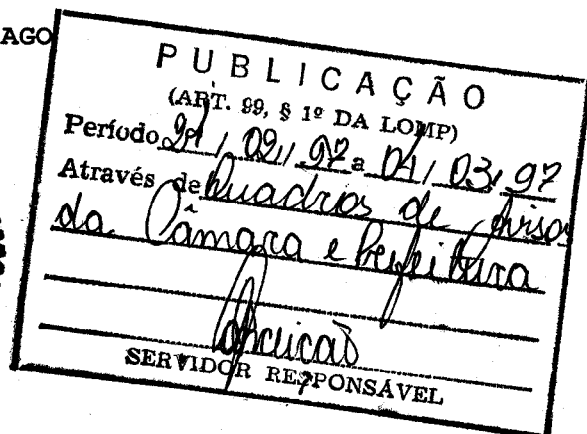 AGO
PUBLICAÇÃO
(ART. 99, § 1º DA LOMP)
Período 21 / 02 / 97 a 04 / 03 / 97
Através de Quadros de avisos
da Câmara e Prefeitura
Conceicao
SERVIDOR RESPONSÁVEL